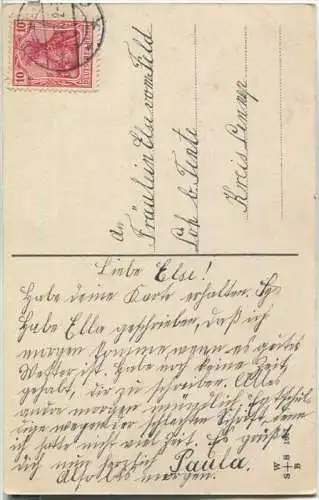 10
10
An
Fräulein Else vom Feld
Loh b. Tente
Kreis Lennep
Liebe Else!
Habe deine Karte erhalten.
Habe Ella geschrieben, daß ich
morgen komme wenn es gutes
Wetter ist. Habe noch keine Zeit
gehabt, dir zu schreiben. Alles
andre morgen mündlich. Entschul-
dige wegen der schlechten Schrift, denn
ich hatte nicht viel Zeit. Es grüßt
dich nun herzlich Paula.
Also bis morgen.
W S
S + B
B